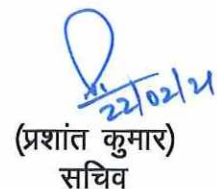 22/02/21
(प्रशांत कुमार)
सचिव